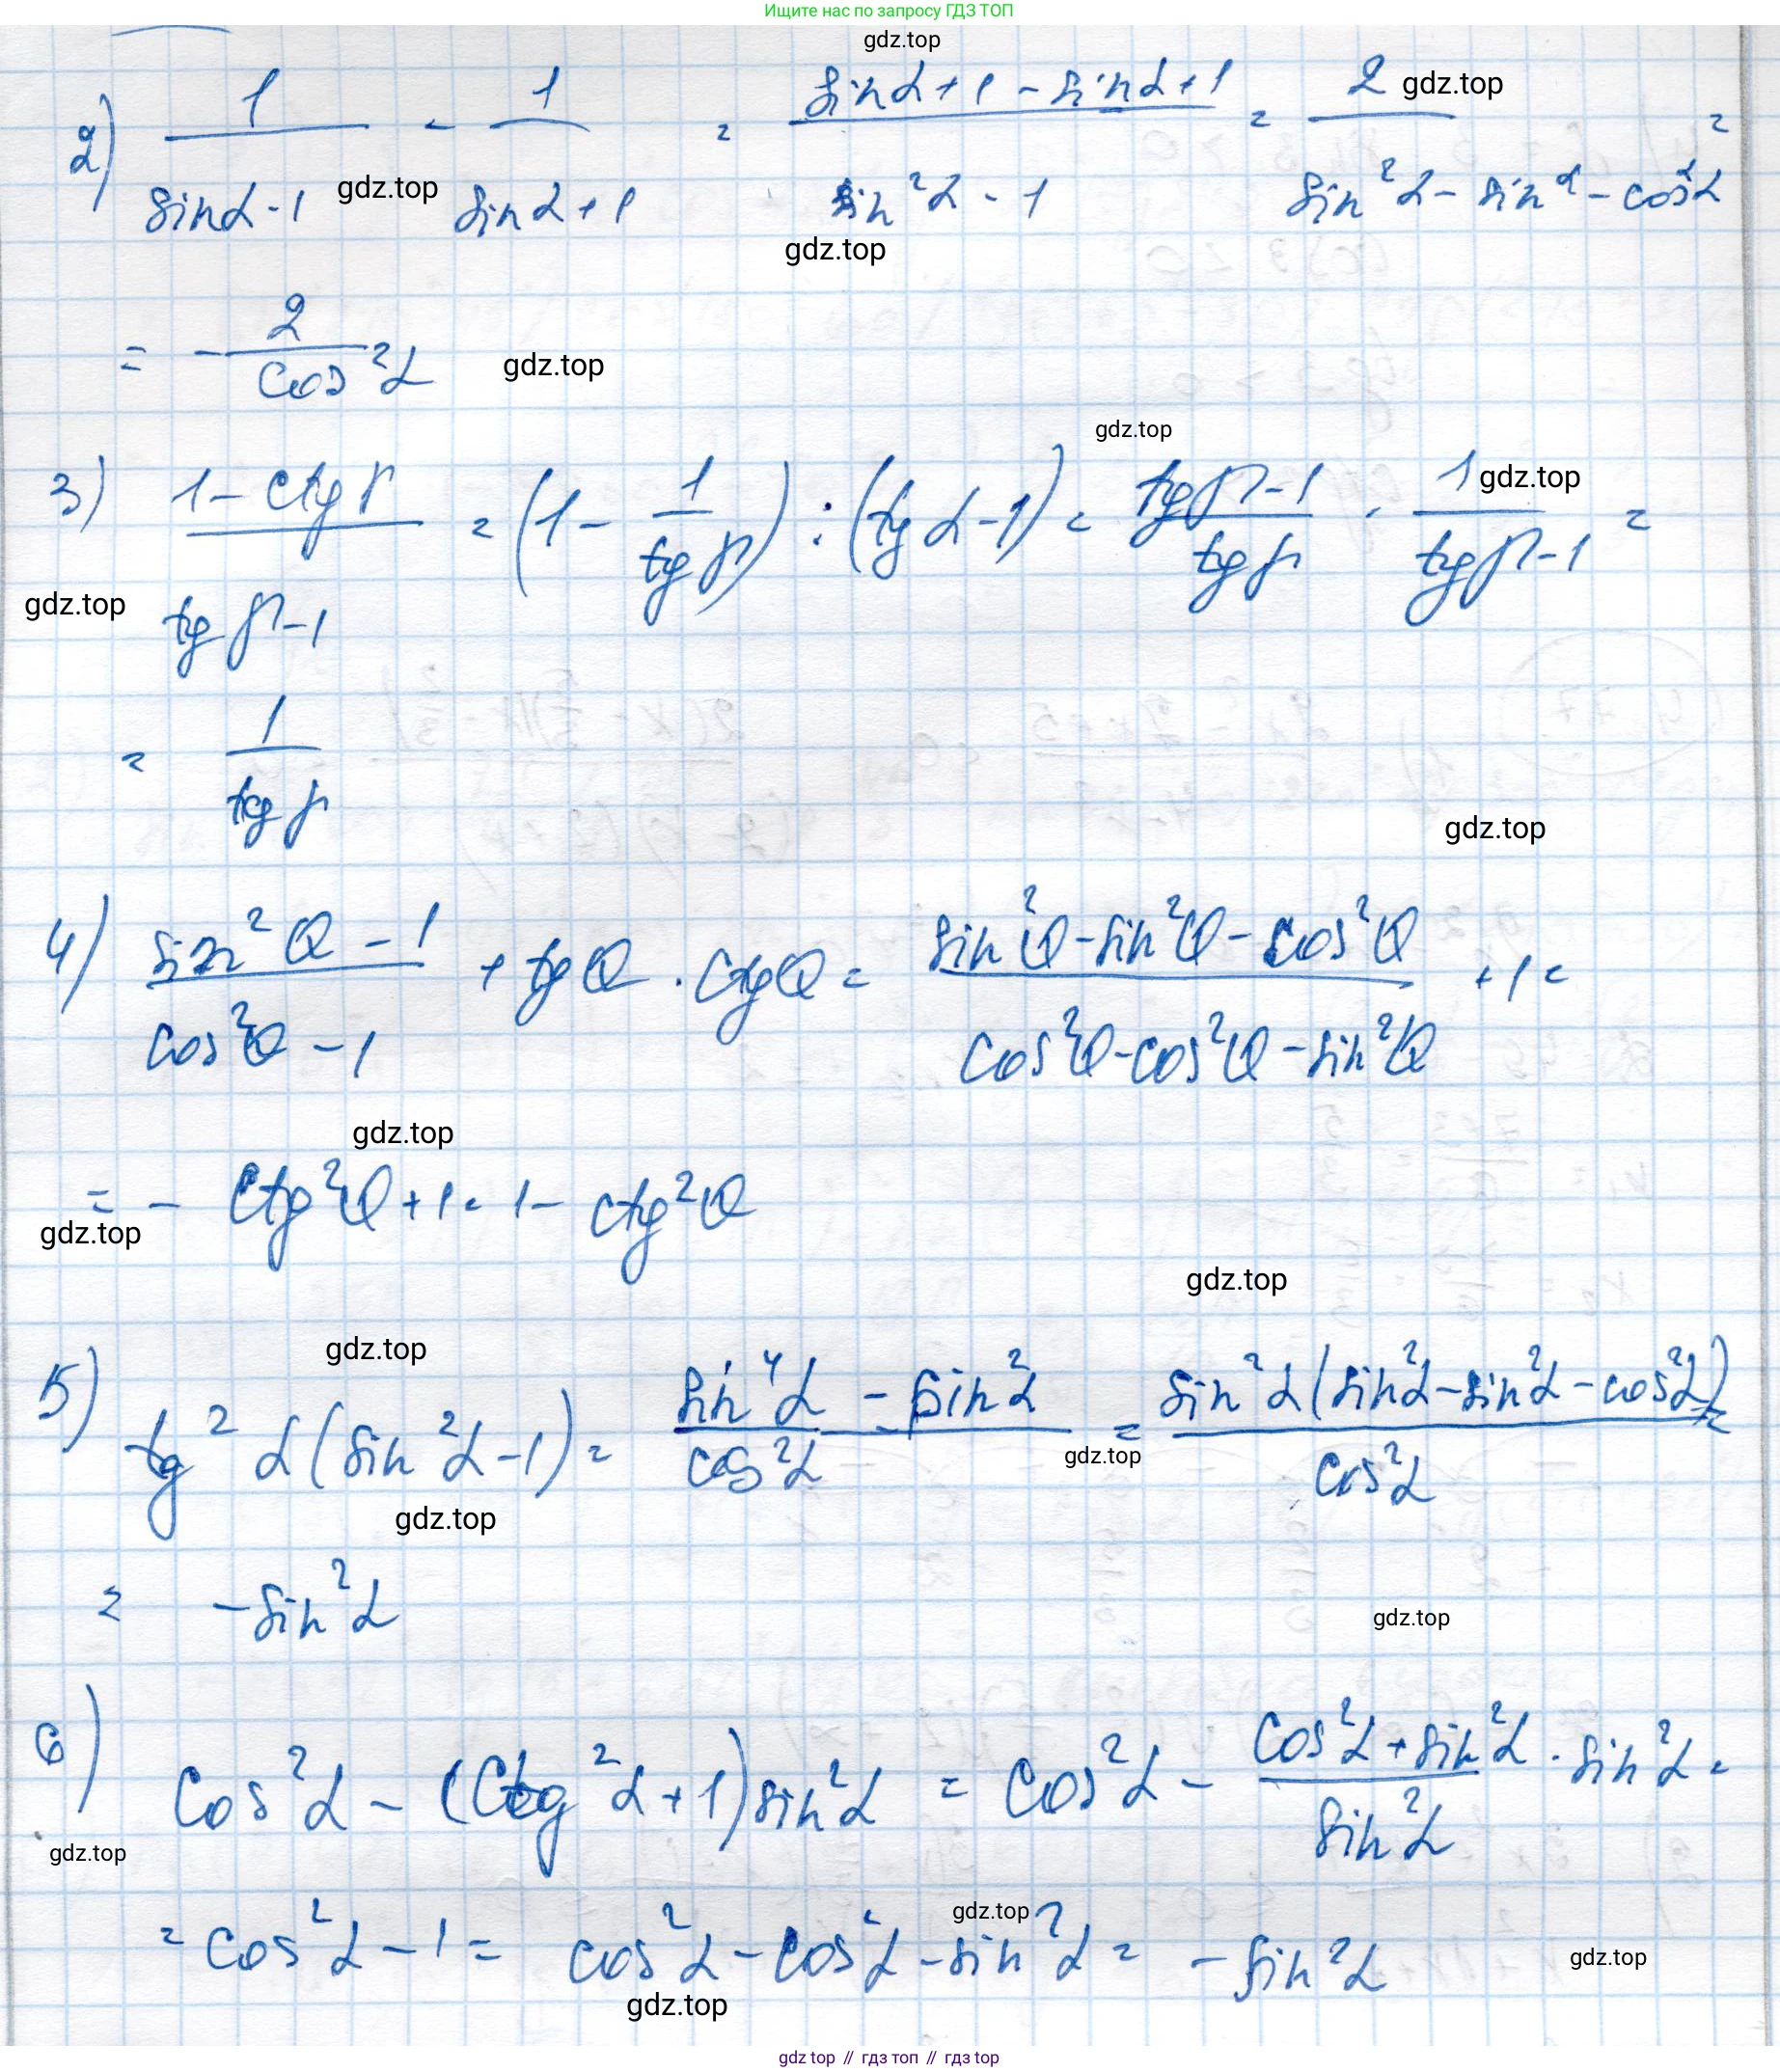 Ищите нас по запросу ГДЗ ТОП
gdz.top
2) 1/(sinα-1) - 1/(sinα+1) = (sinα+1-sinα+1)/(sin²α-1) = 2/(sin²α-sin²-cos²α) =
gdz.top
gdz.top
gdz.top
= -2/cos²α
gdz.top
gdz.top
3) (1-ctgβ)/(tgβ-1) = (1-1/tgβ):(tgα-1) = (tgβ-1)/tgβ · 1/(tgβ-1) =
gdz.top
gdz.top
= 1/tgβ
gdz.top
4) (sin²Q-1)/(cos²Q-1) + tgQ·ctgQ = (sin²Q-sin²Q-cos²Q)/(cos²Q-cos²Q-sin²Q) + 1 =
gdz.top
= -ctg²Q+1 = 1-ctg²Q
gdz.top
gdz.top
gdz.top
5) tg²α(sin²α-1) = (sin⁴α-sin²α)/cos²α = sin²α(sin²α-sin²α-cos²α)/cos²α =
gdz.top
gdz.top
= -sin²α
gdz.top
6) cos²α-(ctg²α+1)sin²α = cos²α-(cos²α+sin²α)/sin²α·sin²α =
gdz.top
gdz.top
= cos²α-1 = cos²α-cos²α-sin²α = -sin²α
gdz.top
gdz.top
gdz top // гдз топ // гдз top